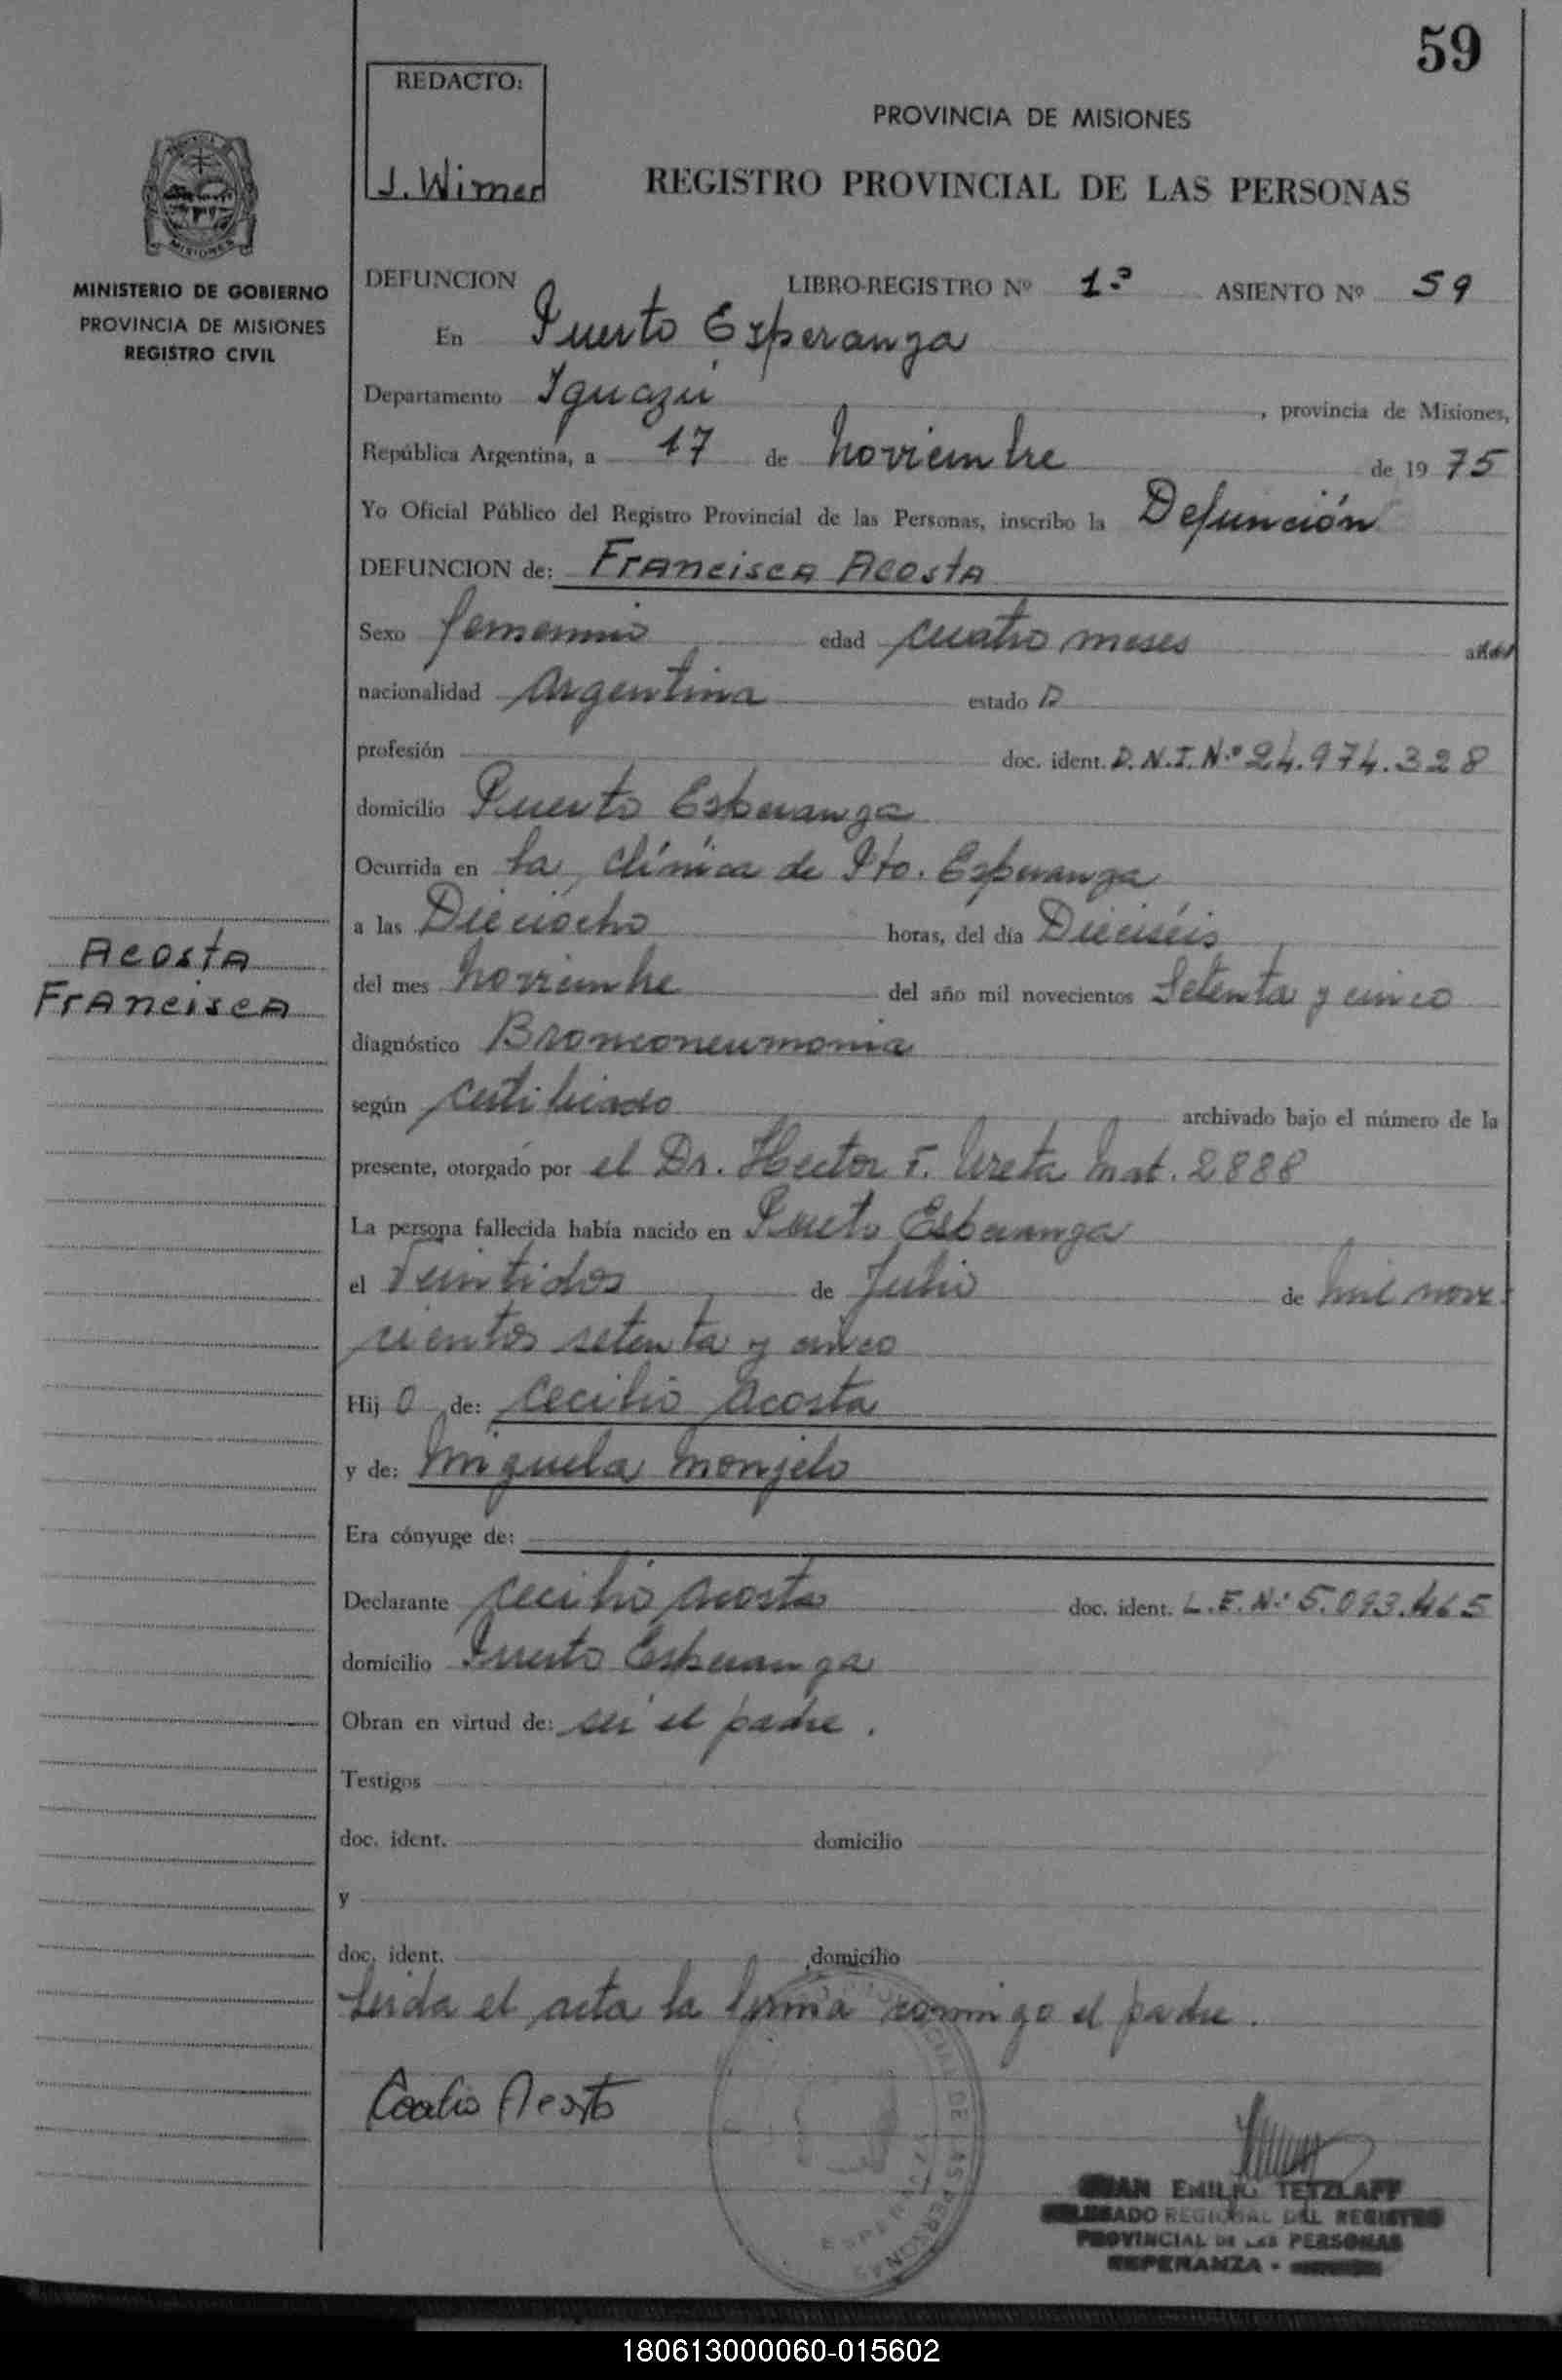 59
REDACTO:
J. Wimer
PROVINCIA DE MISIONES
REGISTRO PROVINCIAL DE LAS PERSONAS
MISIONES
MINISTERIO DE GOBIERNO
PROVINCIA DE MISIONES
REGISTRO CIVIL
DEFUNCION LIBRO-REGISTRO Nº 1º ASIENTO Nº 59
En Puerto Esperanza
Departamento Iguazú , provincia de Misiones,
República Argentina, a 17 de Noviembre de 19 75
Yo Oficial Público del Registro Provincial de las Personas, inscribo la Defunción
DEFUNCION de: Francisca Acosta
Sexo femenino edad cuatro meses
nacionalidad Argentina estado
profesión doc. ident. D.N.I. Nº 24.974.328
domicilio Puerto Esperanza
Ocurrida en la clínica de Pto. Esperanza
a las Dieciocho horas, del día Dieciséis
del mes Noviembre del año mil novecientos Setenta y cinco
diagnóstico Bronconeumonia
según certificado archivado bajo el número de la
presente, otorgado por el Dr. Hector F. Ureta Mat. 2888
La persona fallecida había nacido en Pueto Esperanza
el Veintidos de Julio de mil nove
cientos setenta y cinco
Hij o de: Cecilio Acosta
y de: Miguela Monjelo
Era cónyuge de:
Declarante Cecilio Acosta doc. ident. L.E. Nº 5.093.465
domicilio Puerto Esperanza
Obran en virtud de: ser el padre.
Testigos
doc. ident. domicilio
y
doc. ident. domicilio
Leida el acta la firma conmigo el padre.
Acosta
Francisca
JUAN EMILIO TETZLAFF
DELEGADO REGIONAL DEL REGISTRO
PROVINCIAL DE LAS PERSONAS
ESPERANZA -
180613000060-015602